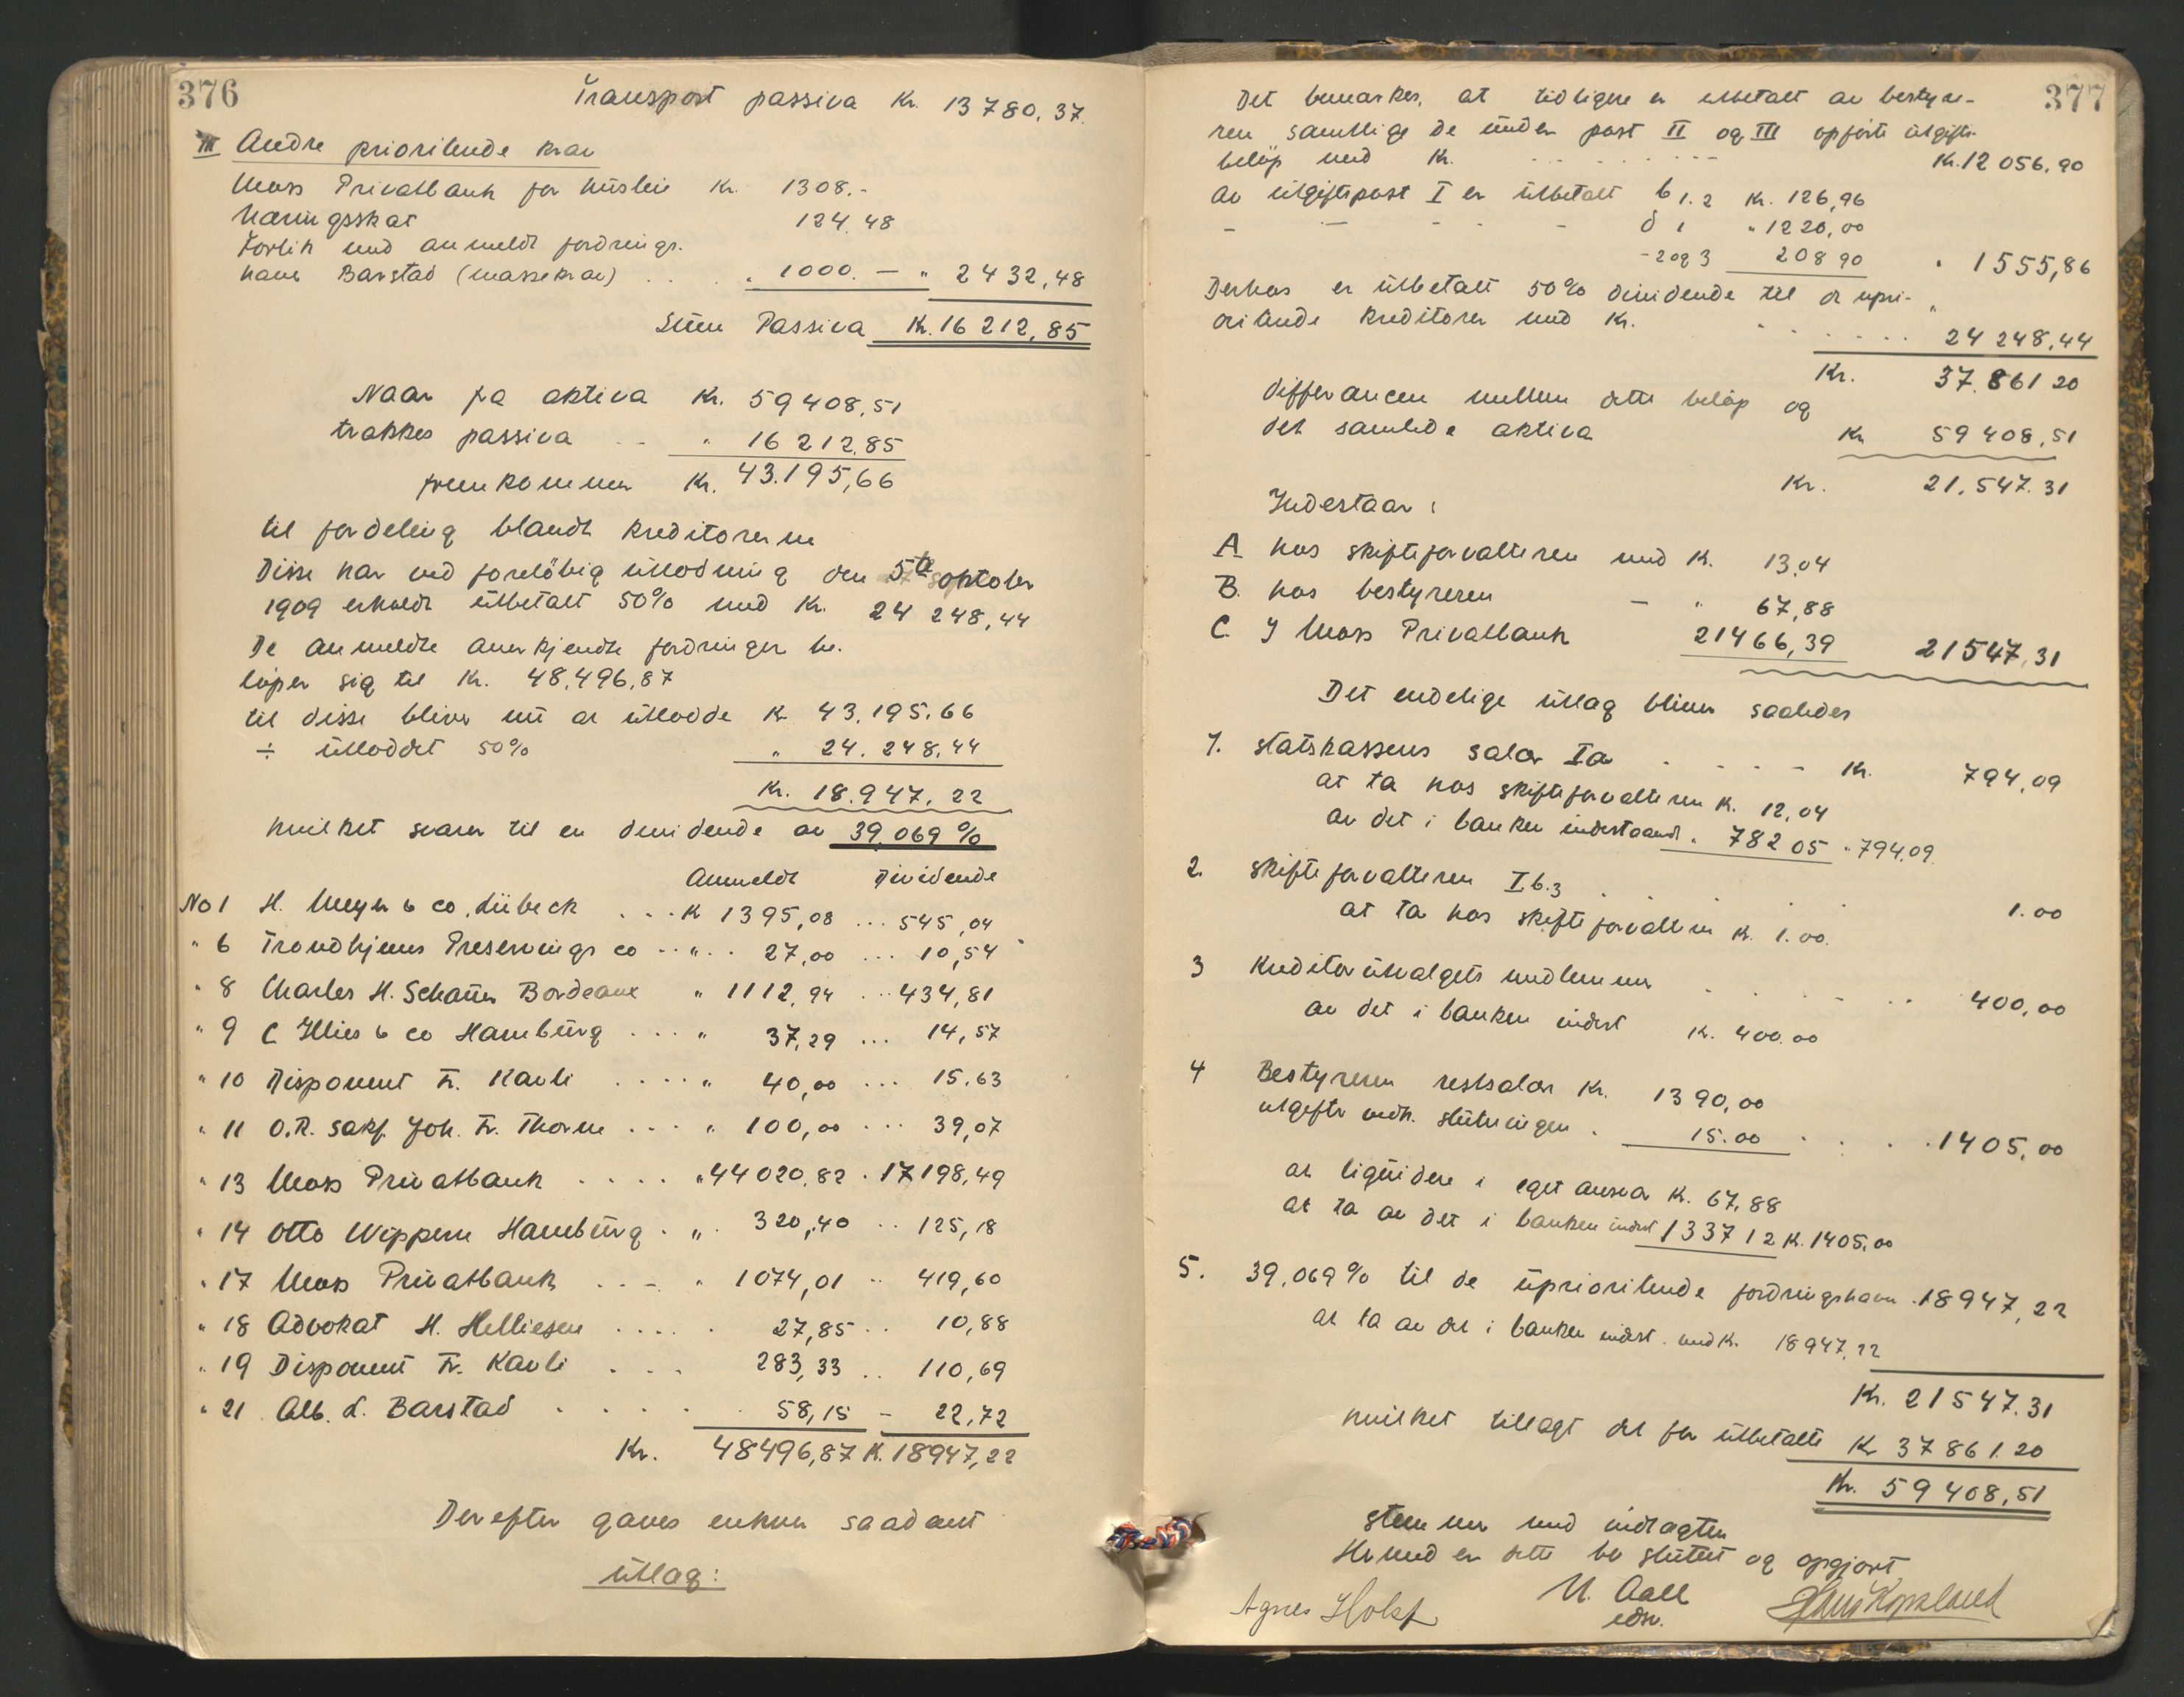 376
Transport passiva Kr. 13780.37.
III Andre prioriterede krav
Moss Privatbank for husleie Kr. 1308.-
Næringsskat 124.48
Forlik med anmeldt fordrings-
haver Barstad (massekrav) . . . " 1000. — " 2432,48
Sum Passiva Kr. 16 212,85
Naar fra aktiva Kr. 59408,51
trækkes passiva - - " 16 212,85
fremkommer Kr. 43.195,66
til fordeling blandt kreditorerne
Disse har ved foreløbig utlodning den 5te oktober
1909 erholdt utbetalt 50% med Kr. 24 248,44
De anmeldte anerkjendte fordringer be-
løper sig til Kr. 48,496,87
til disse bliver nu at utlodde K 43.195.66
÷ utloddet 50% " 24.248,44
Kr. 18.947,22
hvilket svarer til en dividende av 39,069 %
Anmeldt Dividende
No 1 H. Meyer & co, Lübeck . . . K 1395,08 ... 545,04
" 6 Trondhjems Preservings co .. " .. 27,00 ... 10,54
" 8 Charles H. Schauer Bordeaux " 1112,94 ... 434,81
" 9 C Illies & co Hamburg .... " 37,29 ... 14,57
" 10 Disponent Fr. Kavli .... " 40,00 ... 15.63
" 11 O.R. sakf. Joh. Fr. Thorne ... " 100,00 ... 39,07
" 13 Moss Privatbank .... " 44020,82 . 17198,49
" 14 Otto Wipperm Hamburg . " . 320,40 .. 125,18
" 17 Moss Privatbank ... " 1074,01 .. 419,60
" 18 Advokat H. Helliesen .... . 27,85 .. 10,88
" 19 Disponent Fr. Kavli ... 283,33 .. 110,69
" 21 Alb. L. Barstad ..... 58,15 - 22,72
Kr. 48496,87 K. 18947,22
Derefter gaves enhver saadant
utlæg:
377
Det bemærkes, at tidligere er utbetalt av bestyre-
ren samtlige de under post II og III opførte utgifts-
beløp med Kr. ........ Kr. 12 056,90
Av utgiftspost I er utbetalt b 1.2 Kr. 126,96
- — - - - d 1 " 1220,00
- 2 og 3 208 90 " 1555,86
Derhos er utbetalt 50% dividende til de upri-
oriterede kreditorer med Kr. ...... " 24 248,44
Kr. 37.861 20
Differancen mellem dette beløp og
det samlede aktiva Kr 59408,51
Kr. 21.547.31
Indestaar:
A hos skifteforvalteren med K. 13,04
B. hos bestyreren — " 67,88
C I Moss Privatbank 21466,39 21547,31
Det endelige utlæg bliver saaledes
1. Statskassens salær Ia . - - - Kr. 794,09
at ta hos skifteforvalteren K. 12,04
av det i banken indestaaende . 782 05 " 794.09.
2. Skifteforvalteren I.b.3 . . . . 1.00
at ta hos skifteforvalteren K. 1.00.
3 Kreditorutvalgets medlemmer . . . . . . 400,00
av det i banken indest K. 400.00
4 Bestyreren restsalær Kr. 1390,00
utgifter vedk. slutningen . 15.00 . . . . 1405,00
at liquidere i eget ansvar K. 67,88
at ta av det i banken indest 1337 12 K. 1405,00
5. 39,069% til de uprioriterede fordringshavere . 18947,22
at ta av det i banken indest. med K. 18947,22
Kr. 21547.31
hvilket tillagt det før utbetalte K 37861.20
Kr. 59408,51
stemmer med indtægten
Hermed er dette bo sluttet og opgjort
Agnes Holst
N. Aall
edsv.